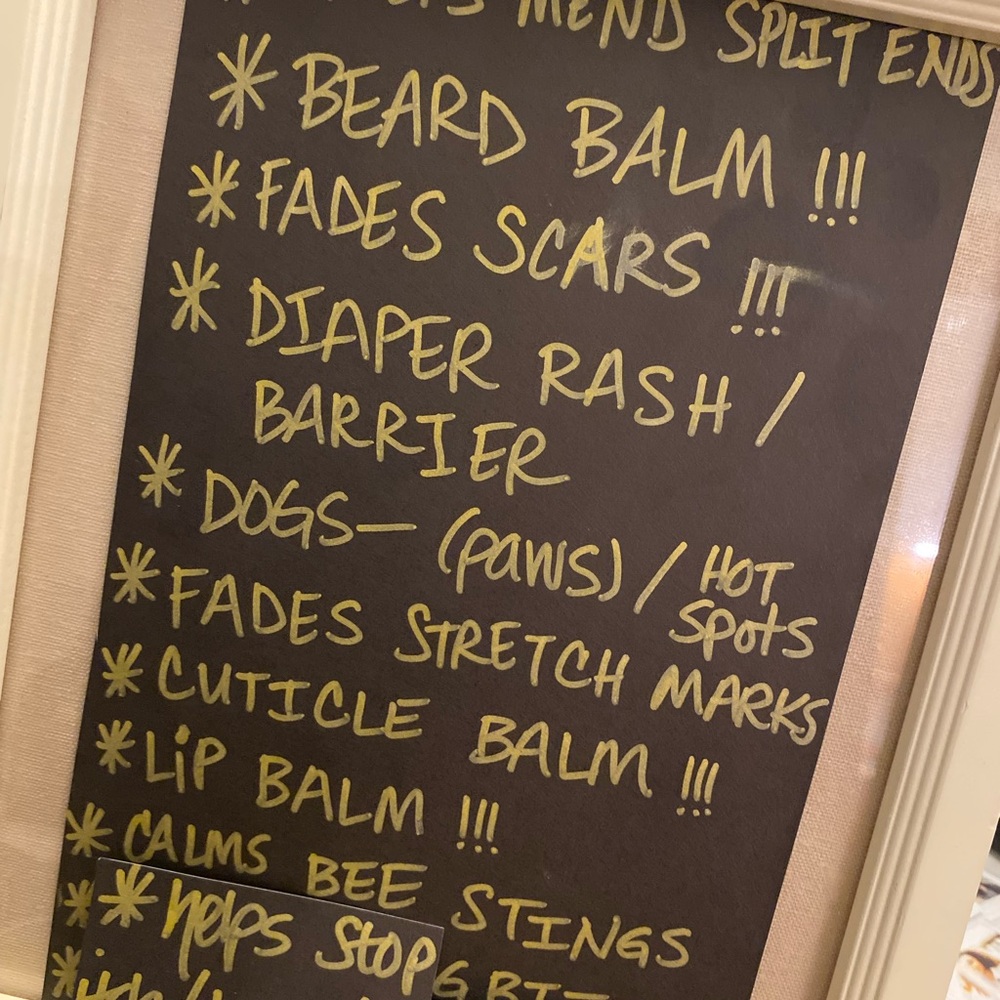 MEND SPLIT ENDS
* BEARD BALM !!!
* FADES SCARS !!!
* DIAPER RASH /
BARRIER
* DOGS— (paws) / HOT
Spots
* FADES STRETCH MARKS
* CUTICLE BALM !!!
* LiP BALM !!!
* CALMS BEE STINGS
* helps Stop